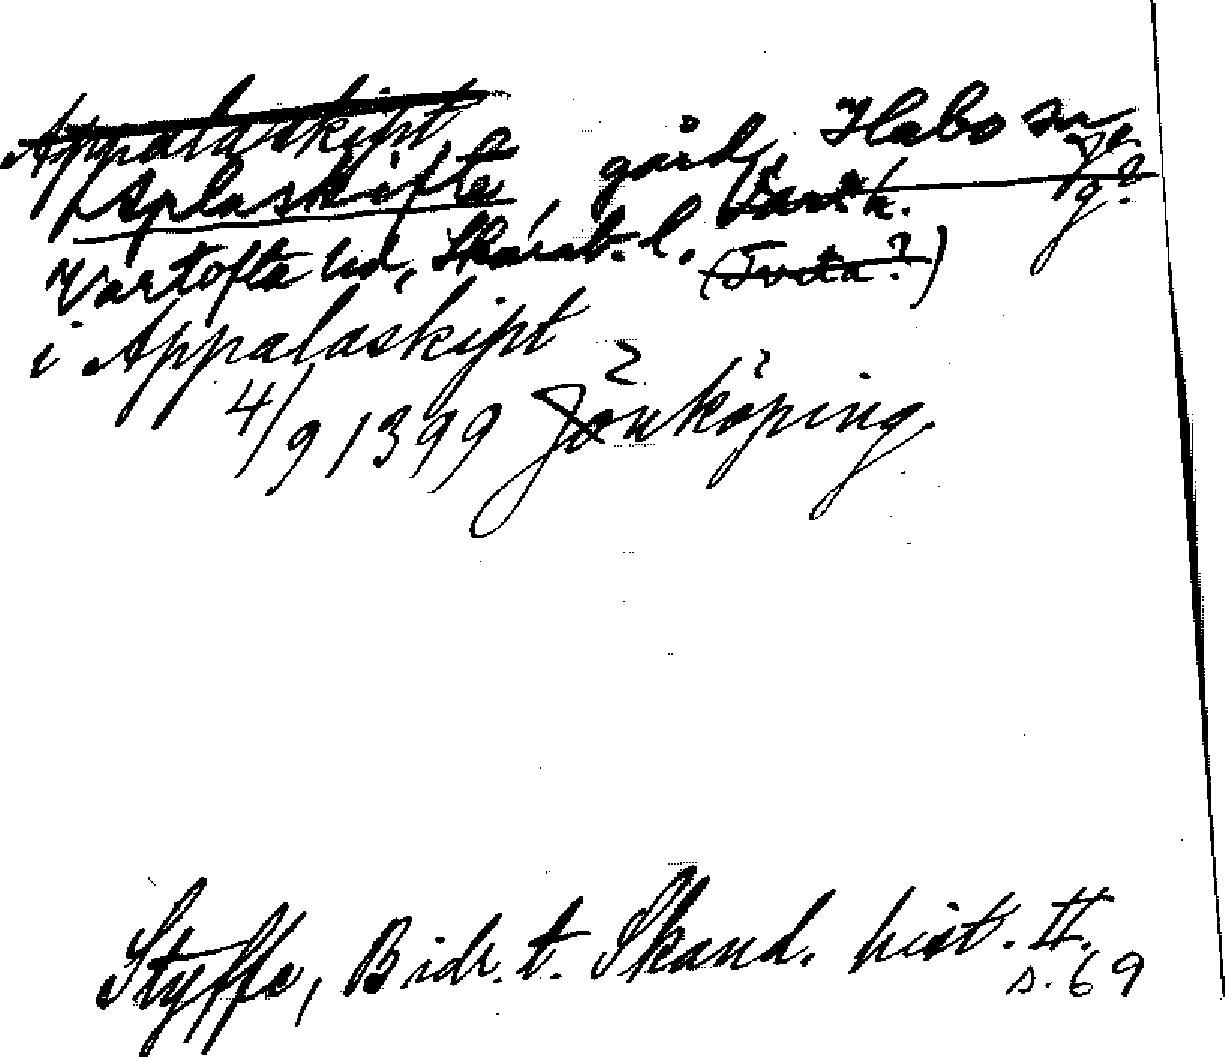 Appalaskipt
Aplaskifte, gård, Habo sn
Vartofta hd, Skarab. l.
(Tveta?)
i Appalaskipt
4/9 1399 Jönköping.
Styffe, Bidr. t. Skand. hist. II.
s. 69